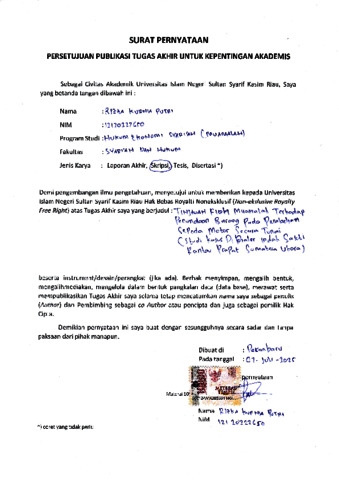 SURAT PERNYATAAN
PERSETUJUAN PUBLIKASI TUGAS AKHIR UNTUK KEPENTINGAN AKADEMIS
Sebagai Civitas Akademik Universitas Islam Negeri Sultan Syarif Kasim Riau, Saya
yang bertanda tangan dibawah ini :
Nama : RIZKA KURNIA PUTRI
NIM : 12120222650
Program Studi : HUKUM EKONOMI SYARIAH (MUAMALAH)
Fakultas : SYARIAH DAN HUKUM
Jenis Karya : Laporan Akhir, Skripsi, Tesis, Disertasi *)
Demi pengembangan ilmu pengetahuan, menyetujui untuk memberikan kepada Universitas
Islam Negeri Sultan Syarif Kasim Riau Hak Bebas Royalti Noneksklusif (Non-exclusive Royalty
Free Right) atas Tugas Akhir saya yang berjudul : "TINJAUAN Fiqih Muamalah Terhadap
Barang Pada Pembelian
Sepeda Motor Secara Tunai
(Studi Kasus Di Dealer Indah Sakti
Rantau Prapat Sumatera Utara)
beserta instrument/desain/perangkat (jika ada). Berhak menyimpan, mengalih bentuk,
mengalihmediakan, mengelola dalam bentuk pangkalan data (data base), merawat serta
mempublikasikan Tugas Akhir saya selama tetap mencantumkan nama saya sebagai penulis
(Author) dan Pembimbing sebagai co Author atau pencipta dan juga sebagai pemilik Hak
Cipta.
Demikian pernyataan ini saya buat dengan sesungguhnya secara sadar dan tanpa
paksaan dari pihak manapun.
Dibuat di : Pekanbaru
Pada tanggal : JULI - 2025
pernyataan
Nama : RIZKA KURNIA PUTRI
NIM : 12120222650
*) coret yang tidak perlu